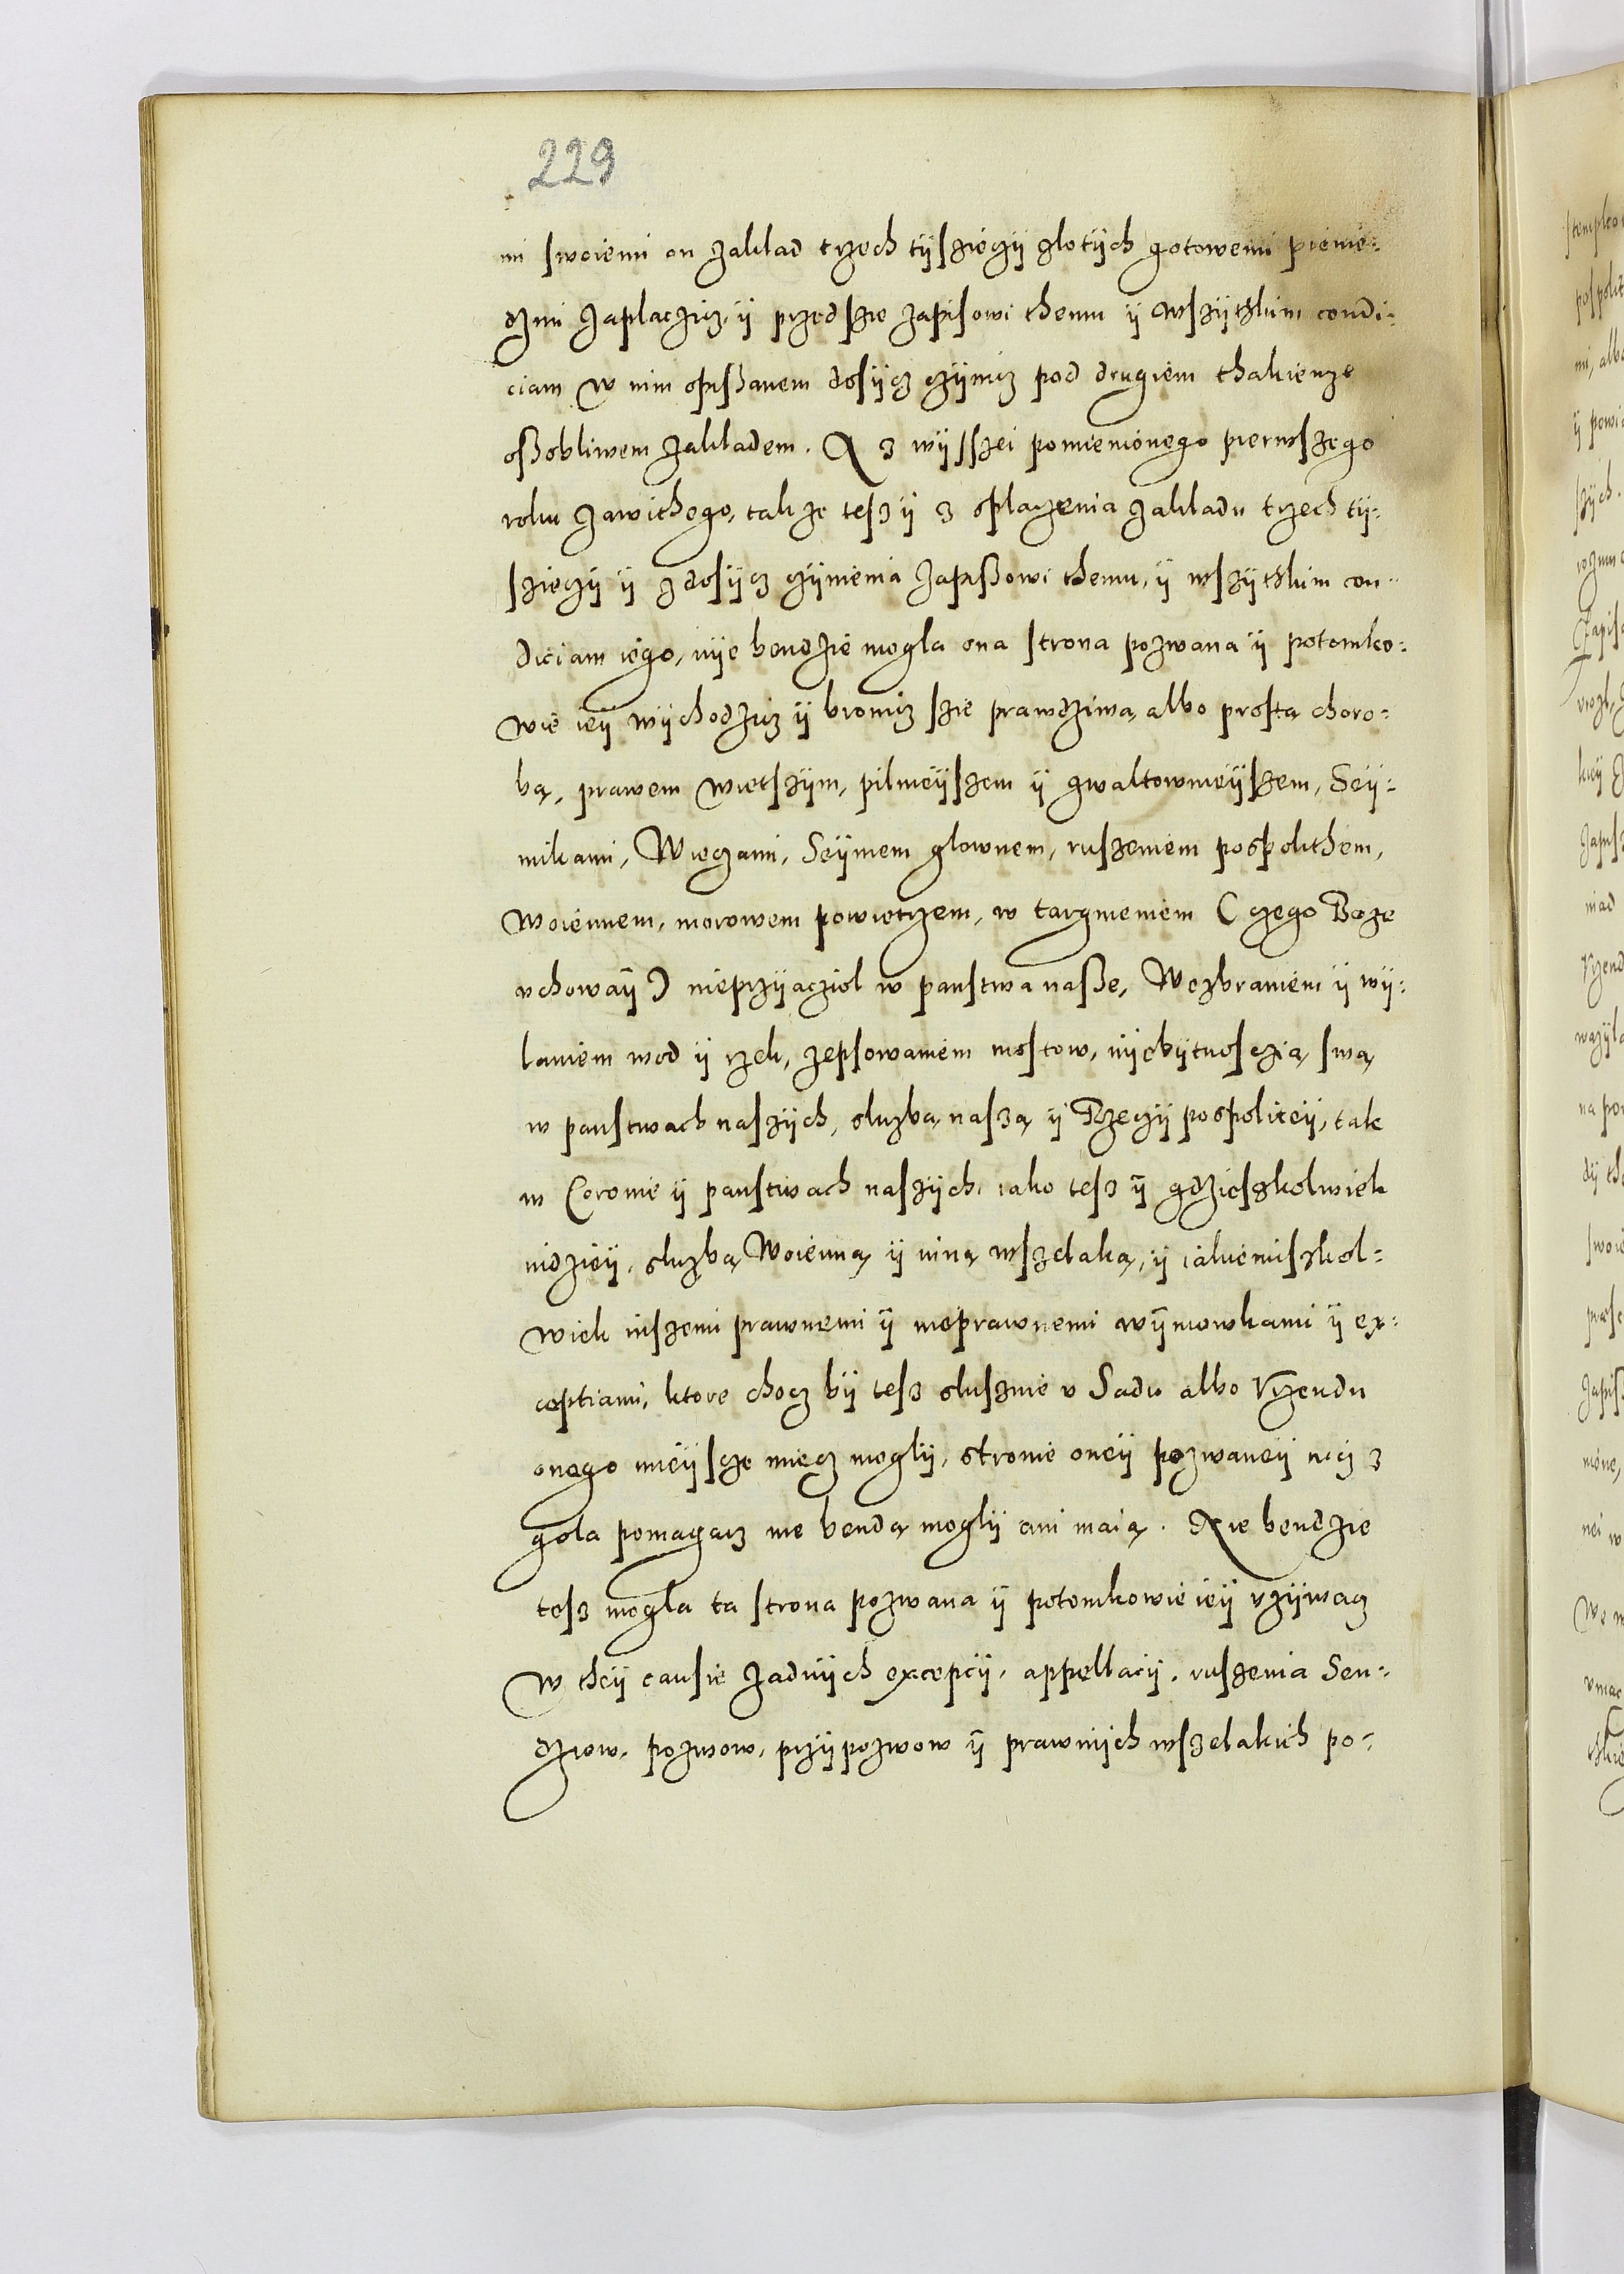 229
mi swoiemi on zaklad trzech tyszięczy zlotych gotowemi pienie-
dzmi zaplaczicz, y przedszie zapisowi themu y wszythkim condi-
ciam w nim opißanem dosycz czynicz pod drugiem thakiemze
oßobliwem zakladem. A z wysszei pomienionego pierwszego
roku zawithego, tak ze tesz y z oplaczenia zakladu trzech ty-
szieczy y z dosycz czynienia zapißowi themu, y wszythkim con-
diciam iego, nye bendzie mogla ona strona pozwana y potomko-
wie iey wychodzicz y bronicz szie prawdziwą albo prostą choro-
bą, prawem wietszym, pilnieyszem y gwaltownieyszem, Sey-
mikami, Wieczami, Seymem glownem, ruszeniem pospolithem,
woiennem, morowem powietrzem, w targnieniem (czego Boze
uchoway) nieprzyacziol w panstwa naße, Wezbraniem y wy-
laniem wod y rzek, zepsowaniem mostow, nyebytnosczią swą
w panstwach naszych, sluzbą naszą y Rzeczy pospolitey, tak
w Coronie y panstwach naszych, iako tesz y gdzieszkolwiek
indziey, sluzbą Woienną y iną wszelaką, y iakiemiszkol-
wiek inszemi prawnemi y nieprawnemi wymowkami y ex-
ceptiami, ktore chocz by tesz slusznie u Sadu albo Urzendu
onego mieyscze miecz mogly, stronie oney pozwaney nicz z
gola pomagacz nie bendą mogly ani maią. Nie bendzie
tesz mogla ta strona pozwana y potomkowie iey uzywacz
w they causie zadnych excepcy, appellacy, ruszenia Sen-
dziow, pozwow, przypozwow y prawnych wszelakich po-